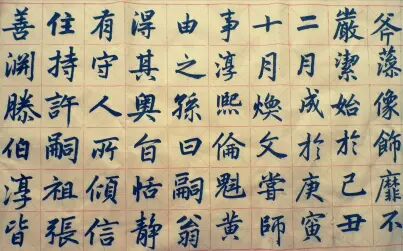 斧藻像飾靡不
嚴潔始於己丑
二月成於庚寅
十月煥文嘗師
事淳熙倫魁黃
由之孫曰嗣翁
得其奧旨恬靜
有守人所傾信
住持許嗣祖張
善渊滕伯淳皆